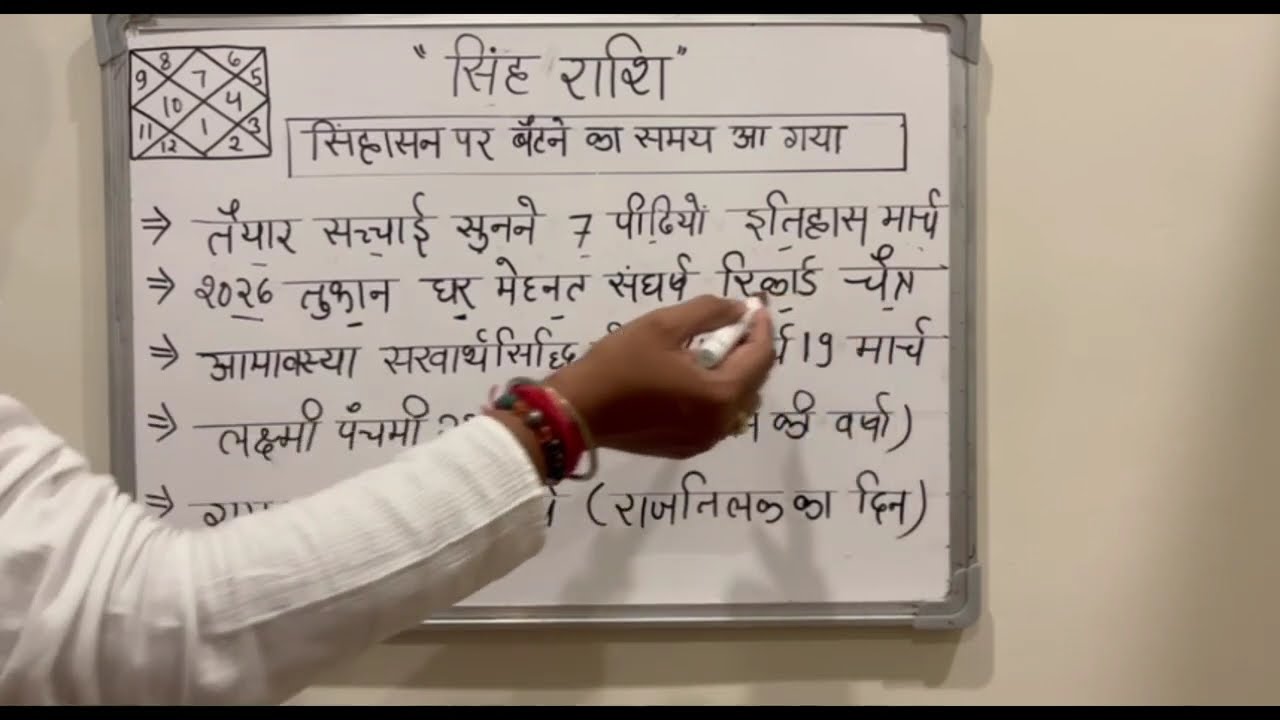 "सिंह राशि"
8 6
9 7 5
10 4
11 1 3
12 2
सिंहासन पर बैठने का समय आ गया
⇒ तैयार सच्चाई सुनने 7 पीढियों इतिहास मार्च
⇒ 2026 तुफान घर मेहनत संघर्ष रिकार्ड चैत्र
⇒ आमावस्या सरवार्थर्सिद्ध 19 मार्च
⇒ लक्ष्मी पंचमी की वर्षा)
⇒ (राजतिलक का दिन)